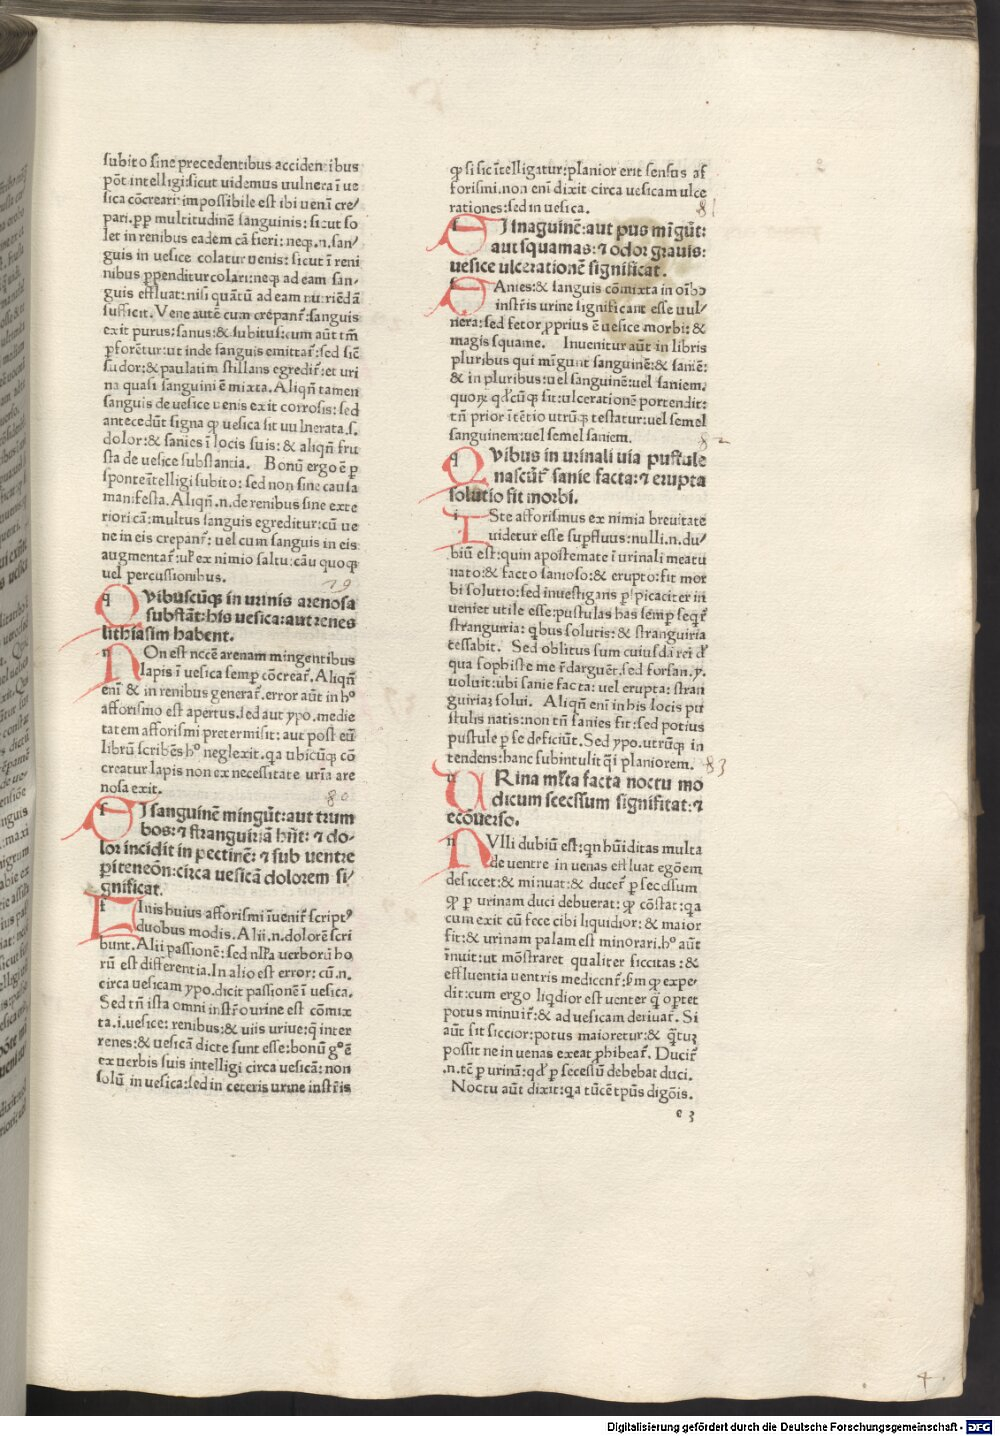 subito sine precedentibus acciden ibus
põt intelligi:sicut uidemus uulnera ĩ ue
sica cõcreari impossibile est ibi uenã cre⸗
pari.ꝓp multitudinẽ sanguinis: sicut so
let in renibus eadem cã fieri: neqꝫ.n.san⸗
guis in uesice colatur uenis: sicut ĩ reni
nibus ꝓpenditur colari:neqꝫ ad eam san⸗
guis effluat:nisi quãtũ ad eam nu riẽdã
sufficit. Vene autẽ cum crepanr̃:sanguis
exit purus:sanus:& subitus:cum aũt tm̃
ꝑforẽtur:ut inde sanguis emittar̃:sed sic̃
sudor:& paulatim stillans egredir̃:et uri
na quasi sanguini ẽ mixta. Aliqñ tamen
sanguis de uesice uenis exit corrosis: sed
antecedũt signa ꝙ uesica sit uulnerata.s.
dolor:& sanies ĩ locis suis: & aliqñ fru
sta de uesice substantia. Bonũ ergo ẽ ꝑ
sponte ĩtelligi subito: sed non sine causa
manifesta. Aliqñ.n.de renibus sine exte
riori cã: multus sanguis egreditur: cũ ue
ne in eis crepanr̃: uel cum sanguis in eis
augmentar̃: ul̃ ex nimio saltu: cãu quoqꝫ
uel percussionibus.
79
q Vibuscũqꝫ in urinis arenosa
substãt: his uesica: aut renes
lithiasim habent.
n On est nccẽ arenam mingentibus
lapis ĩ uesica semꝑ cõcrear̃. Aliqñ
enĩ & in renibus generar̃. error aũt in h°
afforismo est apertus. sed aut ypo. medie
tatem afforismi pretermisit: aut post eũ
librũ scribẽs h° neglexit. qa ubicũqꝫ cõ
creatur lapis non ex necessitate urĩa are
nosa exit.
80
s I sanguinẽ mingũt: aut trum
bos: ⁊ stranguiriã hñt: ⁊ do⸗
lor incidit in pectinẽ: ⁊ sub uentre
piteneõn: circa uesicã dolorem si⸗
gnificat.
f Inis huius afforismi ĩuenir̃ script9
duobus modis. Alii.n.dolorẽ scri
bunt. Alii passionẽ: sed nl̃la uerborũ ho
rũ est differentia. In alio est error: cũ.n.
circa uesicam ypo.dicit passionẽ ĩ uesica.
Sed tñ ista omni instr̃o urine est cõmix
ta.i.uesice: renibus: & uiis uriue: ꝙ inter
renes: & uesicã dicte sunt esse: bonũ g° ẽ
ex uerbis suis intelligi circa uesicã: non
solũ in uesica: sed in ceteris urine instr̃is
ꝙ si sic ĩtelligatur: planior erit sensus af
forismi. non enĩ dixit circa uesicam ulce
rationes: sed in uesica.
81
s I inaguinẽ: aut pus mĩgũt:
aut squamas: ⁊ odor grauis:
uesice ulcerationẽ significat.
s Anies: & sanguis cõmixta in oĩbꝰ
instr̃is urine significant esse uul⸗
nera: sed fetor ꝓprius ẽ uesice morbi: &
magis squame. Inuenitur aũt in libris
pluribus qui mĩgunt sanguinẽ: & saniẽ:
& in pluribus: uel sanguinẽ: uel saniem.
quoꝝ qdcũqꝫ sit: ulcerationẽ portendit:
tñ prior ĩtẽtio utrũqꝫ testatur: uel semel
sanguinem: uel semel saniem.
82
q Vibus in urinali uia pustule
nascũt̃ sanie facta: ⁊ erupta
solutio fit morbi.
i Ste afforismus ex nimia breuitate
uidetur esse suꝑfluus: nulli.n.du⸗
biũ est: quin apostemate ĩ urinali meatu
nato: & facto sanioso: & erupto: fit mor
bi solutio: sed inuestigans ꝑspicaciter in
ueniet utile esse: pustulas has semꝑ seqr̃
stranguiria: qbus solutis: & stranguiria
cessabit. Sed oblitus sum cuiusdã rei d̃
qua sophiste me r̃darguẽt. sed forsan. y.
uoluit: ubi sanie facta: uel erupta: stran
guiriaʒ solui. Aliqñ enĩ in his locis pu
stulis natis: non tñ sanies fit: sed potius
pustule ꝑ se deficiũt. Sed ypo. utrũqꝫ in
tendens: hanc subintulit qĩ planiorem.
83
u Rina ml̃ta facta noctu mo
dicum scecssum signifitat: ⁊
ecõuerso.
n Vlli dubiũ est: qn hũiditas multa
de uentre in uenas effluat egõem
desiccet: & minuat: & ducer̃ ꝑ secessum
ꝙ ꝑ urinam duci debuerat: ꝙ cõstat: qa
cum exit cũ fece cibi liquidior: & maior
fit: & urinam palam est minorari. h° aũt
ĩnuit: ut mõstraret qualiter siccitas: &
effluentia uentris medicenr̃: ẜm ꝙ expe⸗
dit: cum ergo liqdior est uenter q̃ optet
potus minuir̃: & ad uesicam deriuar̃. Si
aũt sit siccior: potus maioretur: & q̃tuʒ
possit ne in uenas exeat ꝓhibear̃. Ducir̃
.n. tẽ ꝑ urinã: qd̃ ꝑ secessũ debebat duci.
Noctu aũt dixit: qa tũc ẽ tp̃us digõis.
e 3
4
Digitalisierung gefördert durch die Deutsche Forschungsgemeinschaft - DFG